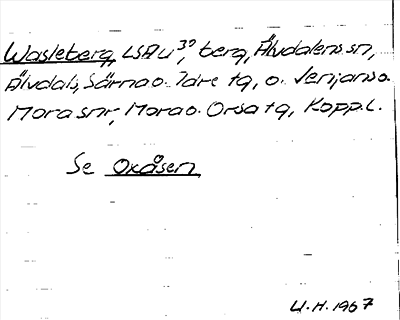 Wasleberg, LSAU 30, berg, Älvdalens sn,
Älvdals, Särna o. Idre tg, o. Venjans o.
Mora snr, Mora o. Orsa tg, Kopp. l.
Se Oxåsen
U.H. 1967